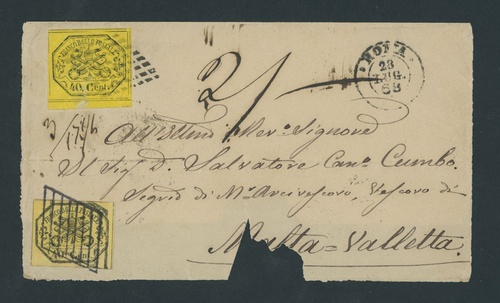 FRANCO BOLLO POSTALE
40 Cent.
2/
ROMA
23
LUG.
68
All'Illmo e Rev.o Signore
Il Sig. D. Salvatore Can.o Cumbo.
Segrio di M.r Arcivescovo, Vescovo di
Malta=Valletta.
40 Cent.